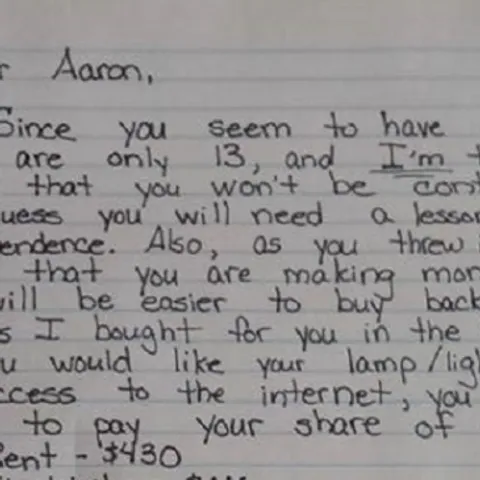 Aaron,
Since you seem to have
are only 13, and I'm
that you won't be
you will need a
Also, as you threw
that you are making
be easier to buy back
I bought for you in the
would like your lamp/
to the internet, you
to pay your share of
- $430